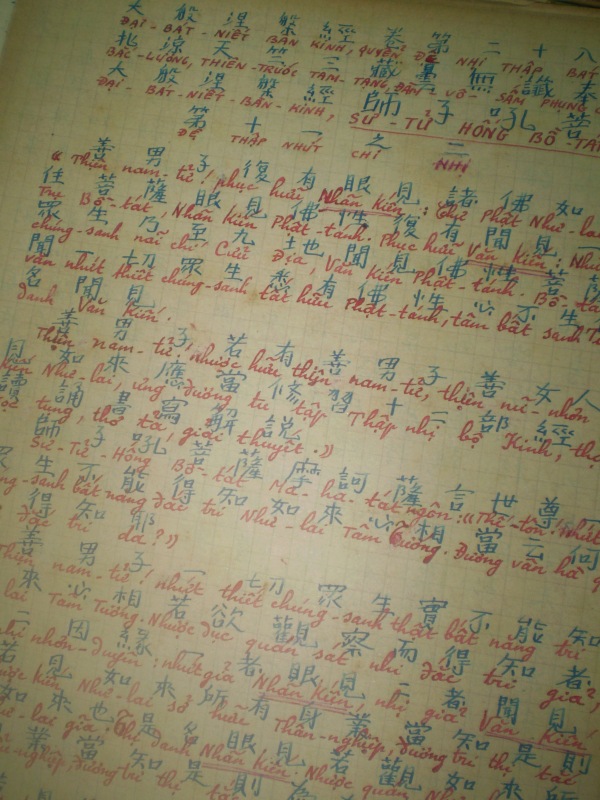 大般涅槃經卷第二十八
ĐẠI - BÁT - NIẾT BÀN KINH, QUYỂN ĐỆ NHỊ THẬP BÁT
北涼天竺三藏曇無讖奉
BẮC - LƯƠNG, THIÊN - TRÚC TAM - TẠNG, ĐÀM VÔ - SẤM PHỤNG
大般涅槃經師子吼菩
ĐẠI - BÁT - NIẾT - BÀN - KINH, SƯ - TỬ HỐNG BỒ - TÁT
第十一之二
ĐỆ THẬP NHỨT CHI NHỊ
善男子復有眼見諸佛如
"Thiện nam-tử! phục hữu Nhãn Kiến: Chư Phật Như-lai
住菩薩眼見佛性復有聞見
Trụ Bồ-tát, Nhãn Kiến Phật-tánh. Phục hữu Văn Kiến:
眾生乃至九地聞見佛性菩
chúng-sanh nãi chí Cửu Địa, Văn Kiến Phật-tánh. Bồ-tát
聞一切眾生悉有佛性心不生
văn nhứt thiết chúng-sanh tất hữu Phật-tánh, tâm bất sanh
名聞見
danh Văn Kiến.
善男子若有善男子善女人
Thiện nam-tử! nhược hữu thiện nam-tử, thiện nữ-nhơn
見如來應當修習十二部經
Kiến Như-lai, ưng đương tu tập Thập nhị bộ Kinh, thọ
讀誦書寫解說
tụng, thơ tả, giải thuyết.»
師子吼菩薩摩訶薩言世尊一
Sư-Tử-Hống Bồ-tát Ma-ha-tát ngôn: «Thế-tôn! Nhứt
眾生不能得知如來心相當云何
chúng-sanh bất năng đắc tri Như-lai Tâm Tướng. Đương vân hà
得知耶
đắc tri da?»
善男子一切眾生實不能知
Thiện nam-tử! nhứt thiết chúng-sanh thật bất năng tri
來心相若欲觀察而得知者
lai Tâm Tướng. Nhược dục quan sát nhi đắc tri giả,
二因緣一者眼見二者聞見
nhị nhơn-duyên: nhứt giả Nhãn Kiến, nhị giả Văn Kiến
若見如來所有身業當知是則
nhược kiến Như-lai sở hữu Thân-nghiệp, đương tri thị tắc
如來也是名眼見若觀如來所
Như-lai giã. Thị danh Nhãn Kiến. Nhược quan Như
業當知是則為
nghiệp, đương tri thị tắc